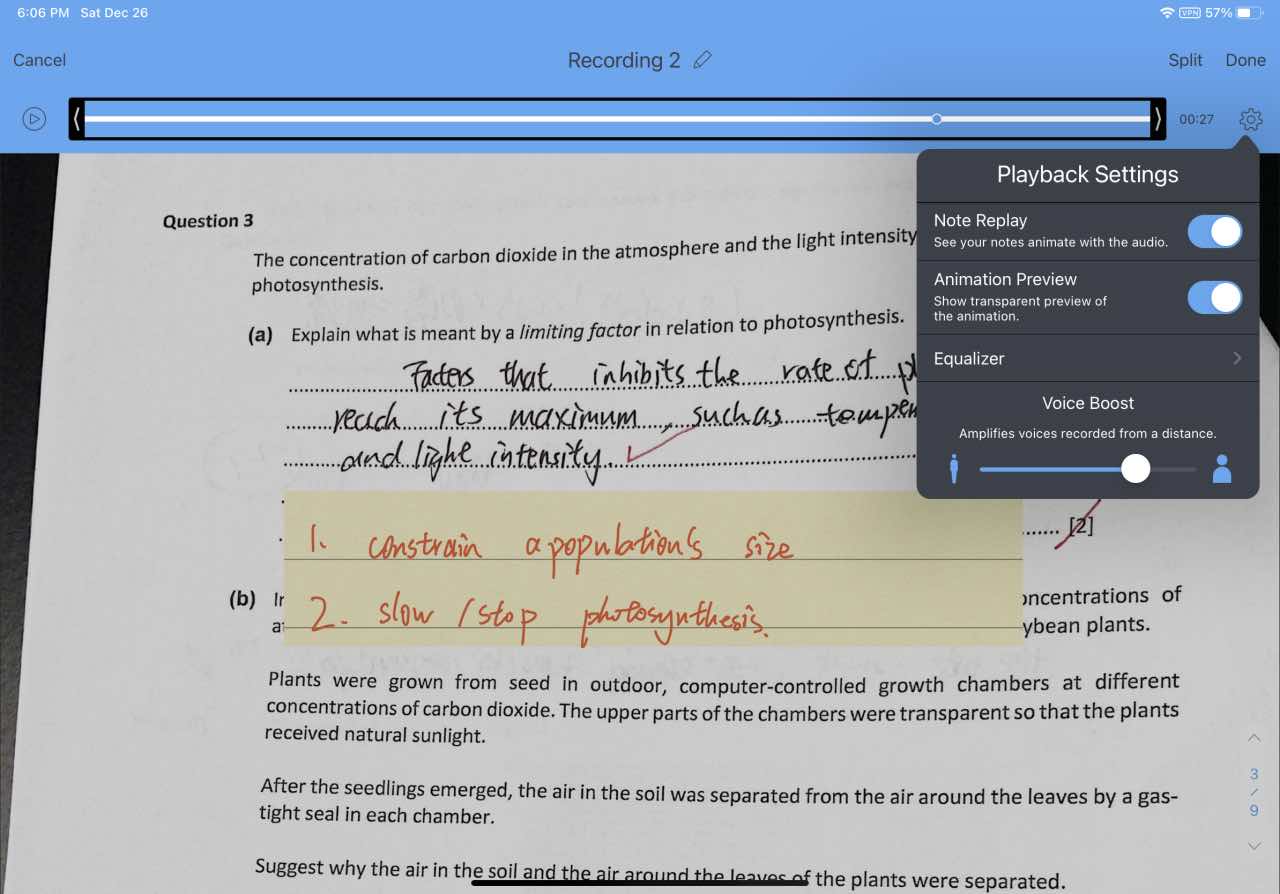 6:06 PM Sat Dec 26
VPN 57%
Cancel
Recording 2
Split Done
00:27
Playback Settings
Note Replay
See your notes animate with the audio.
Animation Preview
Show transparent preview of
the animation.
Equalizer
Voice Boost
Amplifies voices recorded from a distance.
Question 3
The concentration of carbon dioxide in the atmosphere and the light intensity
photosynthesis.
(a) Explain what is meant by a limiting factor in relation to photosynthesis.
Factors that inhibits the rate of
reach its maximum, such as
and light intensity.
[2]
1. constrain a population's size
2. slow / stop photosynthesis.
(b)
oncentrations of
ybean plants.
Plants were grown from seed in outdoor, computer-controlled growth chambers at different
concentrations of carbon dioxide. The upper parts of the chambers were transparent so that the plants
received natural sunlight.
After the seedlings emerged, the air in the soil was separated from the air around the leaves by a gas-
tight seal in each chamber.
Suggest why the air in the soil and the air around the leaves of the plants were separated.
3
/
9